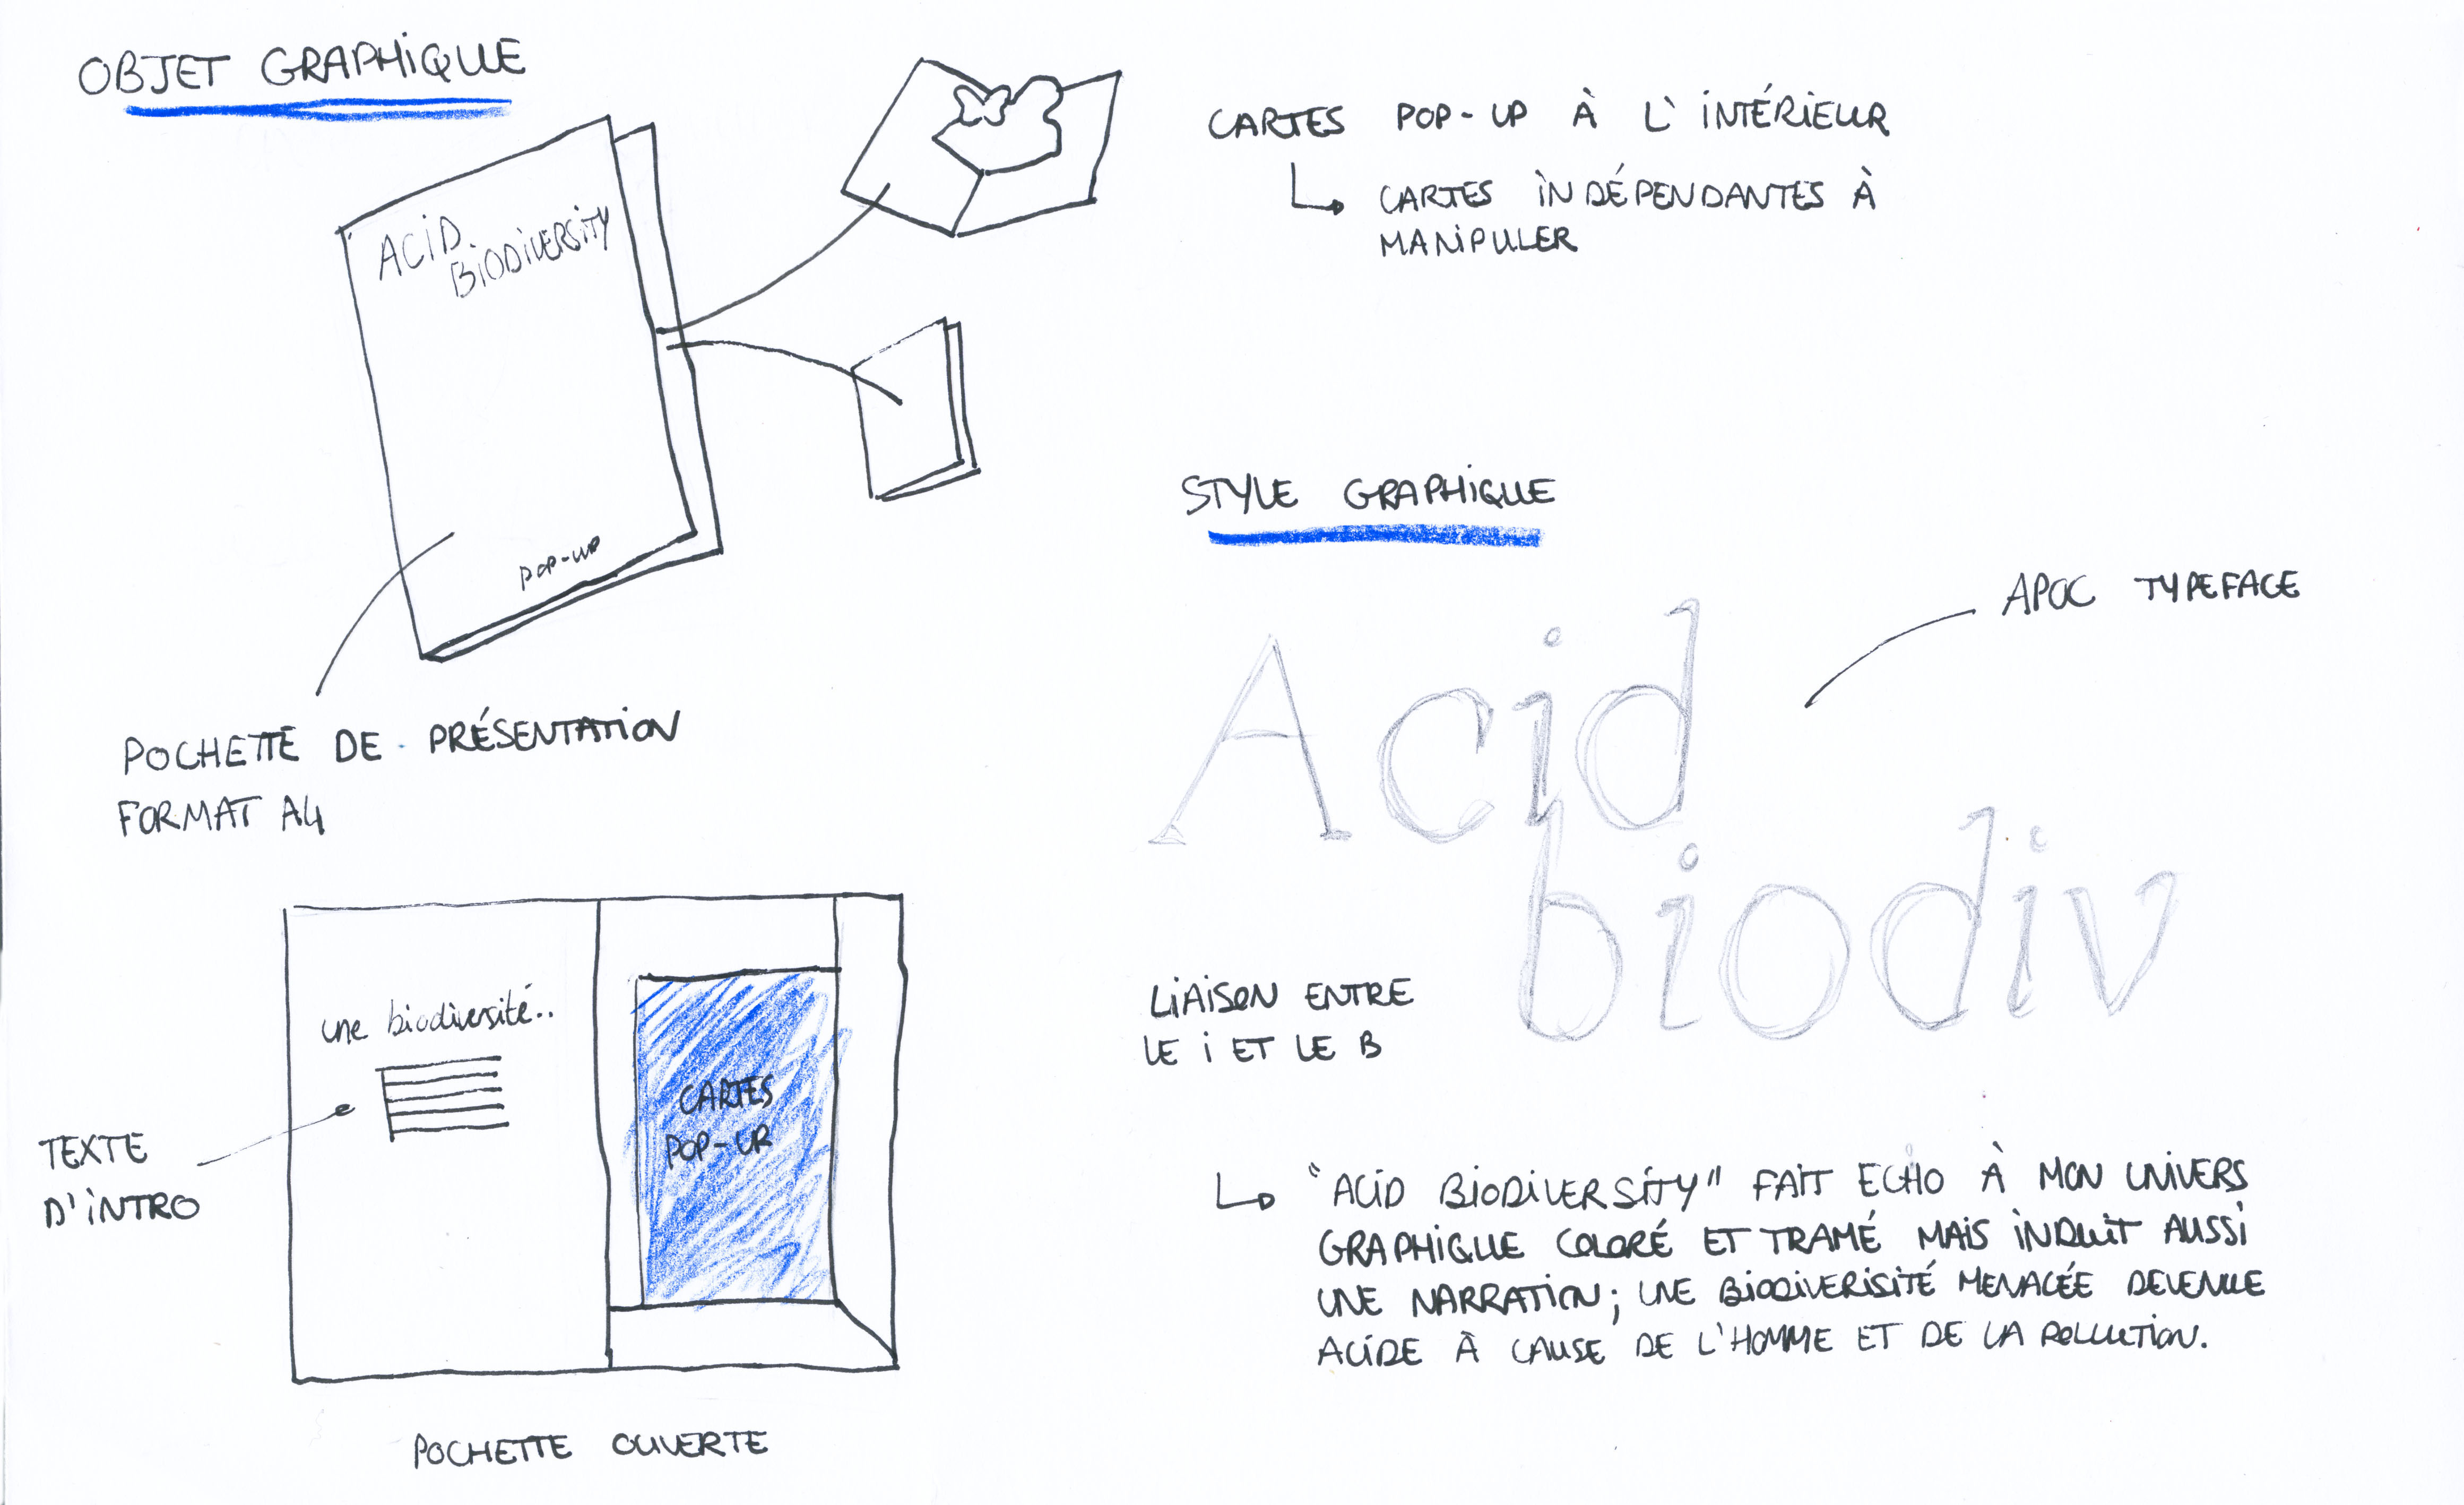 OBJET GRAPHIQUE
ACID
BIODIVERSITY
POP-UP
POCHETTE DE PRÉSENTATION
FORMAT A4
CARTES POP-UP À L'INTÉRIEUR
CARTES INDÉPENDANTES À
MANIPULER
STYLE GRAPHIQUE
APOC TYPEFACE
Acid
biodiv
LIAISON ENTRE
LE i ET LE B
"ACID BIODIVERSITY" FAIT ECHO À MON UNIVERS
GRAPHIQUE COLORÉ ET TRAMÉ MAIS INDUIT AUSSI
UNE NARRATION; UNE BIODIVERISITÉ MENACÉE DEVENUE
ACIDE À CAUSE DE L'HOMME ET DE LA POLLUTION.
une biodiversité..
CARTES
POP-UP
TEXTE
D'INTRO
POCHETTE OUVERTE